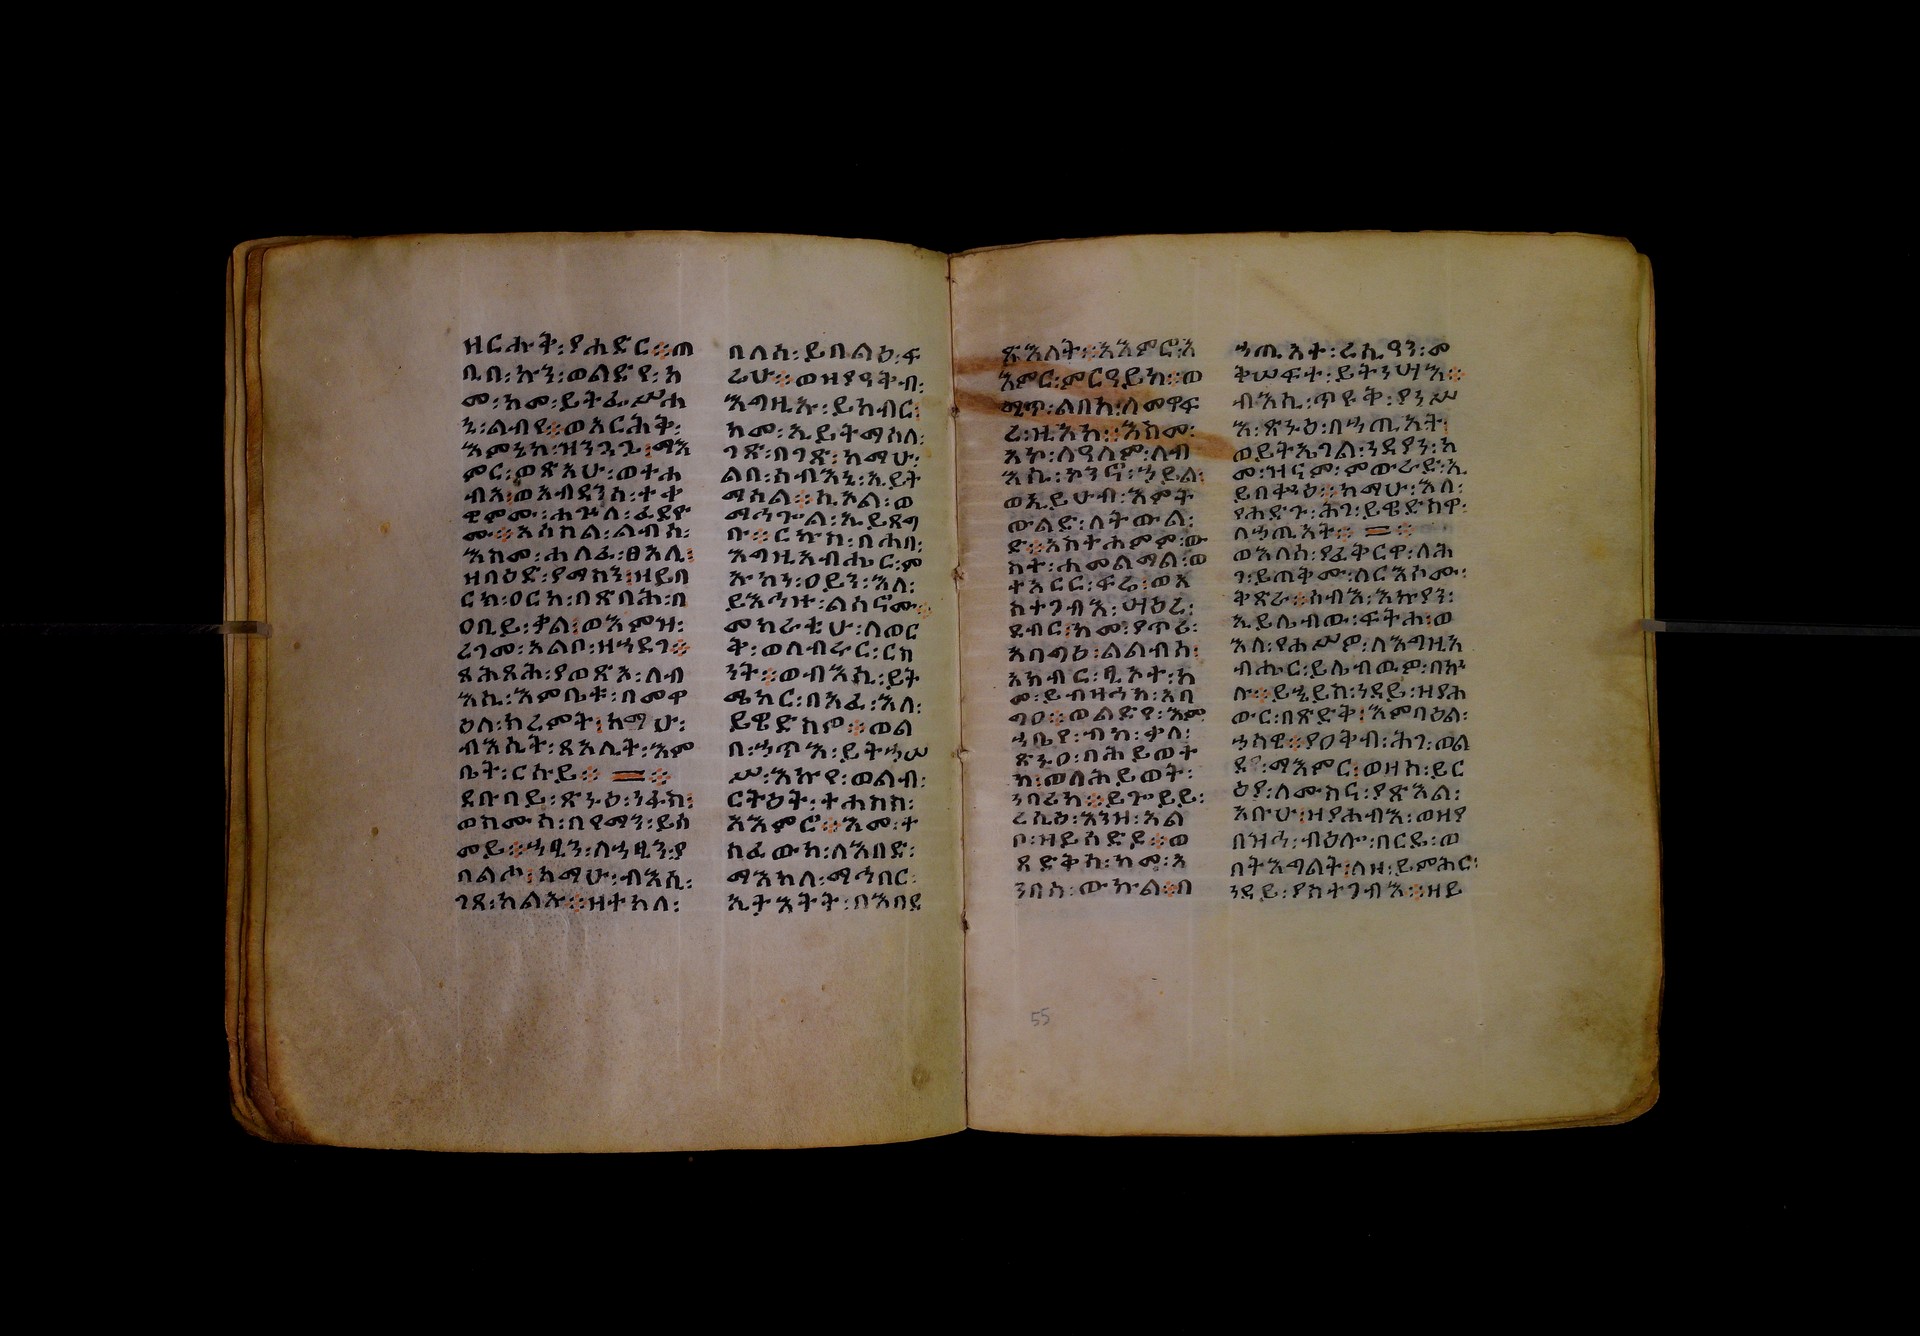 ዘርሑቅ፡የሐድር፨ጠ
ቢበ፡ኩን፡ወልድየ፡ከ
መ፡ከመ፡ይትፌሥሐ
ኒ፡ልብየ፨ወአርሕቅ፡
እምኔከ፡ዝንጓጔ፡ማእ
ምር፡ወጽአሁ፡ወተሐ
ብአ፡ወአብደንሰ፡ተቀ
ዊሞሙ፡ሐጕለ፡ፈደዮ
ሙ፨አስከል፡ልብስ፡
እስመ፡ሐለፈ፡ፀአሊ፡
ዘበዕድ፡ያማስን፡ዘይባ
ርክ፡ዐርከ፡በጽባሕ፡በ
ዐቢይ፡ቃል፡ወእምዝ፡
ረገመ፡አልቦ፡ዘኀደገ፨
ጸሕጸሕ፡ያወጽእ፡ለብ
እሲ፡እምቤቱ፡በመዋ
ዕለ፡ክረምት፡ከማሁ፡
ብእሲት፡ጸአሊት፡እም
ቤት፡ርኩይ፨ ፨
ደቡባይ፡ጽኑዕ፡ነፋስ፡
ወስሙሰ፡በየማን፡ይሰ
መይ፨ኀፂን፡ለኀፂን፡ያ
በልሖ፡ከማሁ፡ብእሲ፡
ገጸ፡ካልኡ፨ዘተከለ፡
በለሰ፡ይበልዕ፡ፍ
ሬሁ፨ወዘያዓቅብ፡
እግዚኡ፡ይከብር፡
ከመ፡ኢይትማሰለ፡
ገጽ፡በገጽ፡ከማሁ፡
ልበ፡ሰብእኒ፡ኢይት
ማሰል፨ሲኦል፡ወ
ማኅጐል፡ኢይጸግ
ቡ፨ርኩስ፡በሐበ፡
እግዚአብሔር፡ም
ኡከን፡ዐይን፡እለ፡
ይእኅዙ፡ልሰኖሙ፨
መከራቲሁ፡ለወር
ቅ፡ወለብሩር፡ርስ
ንት፨ወብእሲ፡ይት
ሜከር፡በአፈ፡እለ፡
ይዌድስዎ፨ወል
በ፡ኃጥእ፡ይትኃሠ
ሥ፡እኩየ፡ወልብ፡
ርትዕት፡ተሐስስ፡
አእምሮ፨እመ፡ተ
ከፈውከ፡ለአበድ፡
ማእከለ፡ማኅበር፡
ኢትአትት፡በአበደ
ጽእለት፨አእምሮ፡አ
እምር፡ምርዓይከ፨ወ
ሚጥ፡ልበከ፡ለመዋፍ
ረ፡ዚአከ፨እስመ፡
አኮ፡ለዓለም፡ለብ
እሲ፡ኮንኖ፡ኃይል፡
ወኢይሁብ፡እምት
ውልድ፡ለትውል፡
ድ፨አስተሐምም፡ው
ስተ፡ሐመልማል፡ወ
ተአርር፡ፍሬ፡ወአ
ስተገብእ፡ሣዕረ፡
ደብር፡ከመ፡ያጥሪ፡
አባግዕ፡ልልብስ፡
አክብር፡ዒኦተ፡ከ
መ፡ይብዛኅከ፡አባ
ግዐ፨ወልድየ፡እም
ኃቤየ፡ብከ፡ቃለ፡
ጽኑዐ፡በሕይወት
ከ፡ወለሕይወት፡
ነባሪከ፨ይጐይይ፡
ረሲዕ፡እንዘ፡አል
ቦ፡ዘይሰድዶ፨ወ
ጻድቅሰ፡ከመ፡አ
ንበሳ፡ውኩል፨በ
ኃጢአተ፡ረሲዓን፡መ
ቅሠፍተ፡ይትነሣእ፨
ብእሲ፡ጥዩቅ፡ያንሥ
እ፡ጽኑዕ፡በኃጢአት፡
ወይትኤገል፡ነዳያን፡ከ
መ፡ዝናም፡ምውራድ፡ኢ
ይበቍዕ፨ከማሁ፡እለ፡
የሐድጉ፡ሕገ፡ይዌድስዋ፡
ለኃጢአት፨ ፨
ወእለሰ፡ያፈቅርዋ፡ለሕ
ግ፡ይጠቅሙ፡ለርእሶሙ፡
ቅጽረ፨ሰብእ፡እኩያን፡
ኢይሌብው፡ፍትሐ፡ወ
እለ፡የሐሥዎ፡ለእግዚአ
ብሔር፡ይሌብዉዎ፡በኵ
ሉ፨ይኄይስ፡ነዳይ፡ዘየሐ
ውር፡በጽድቅ፡እምባዕል፡
ኃሳዊ፨የዐቅብ፡ሕገ፡ወል
ድ፡ማእምር፡ወዘሰ፡ይር
ዕያ፡ለሙስና፡ያጽእል፡
አቡሁ፡ዘያሐብእ፡ወዘያ
በዝኅ፡ብዕሎ፡በርዴ፡ወ
በትእግልት፡ለዘ፡ይምሕር፡
ነዳይ፡ያስተገብእ፨ዘይ
55